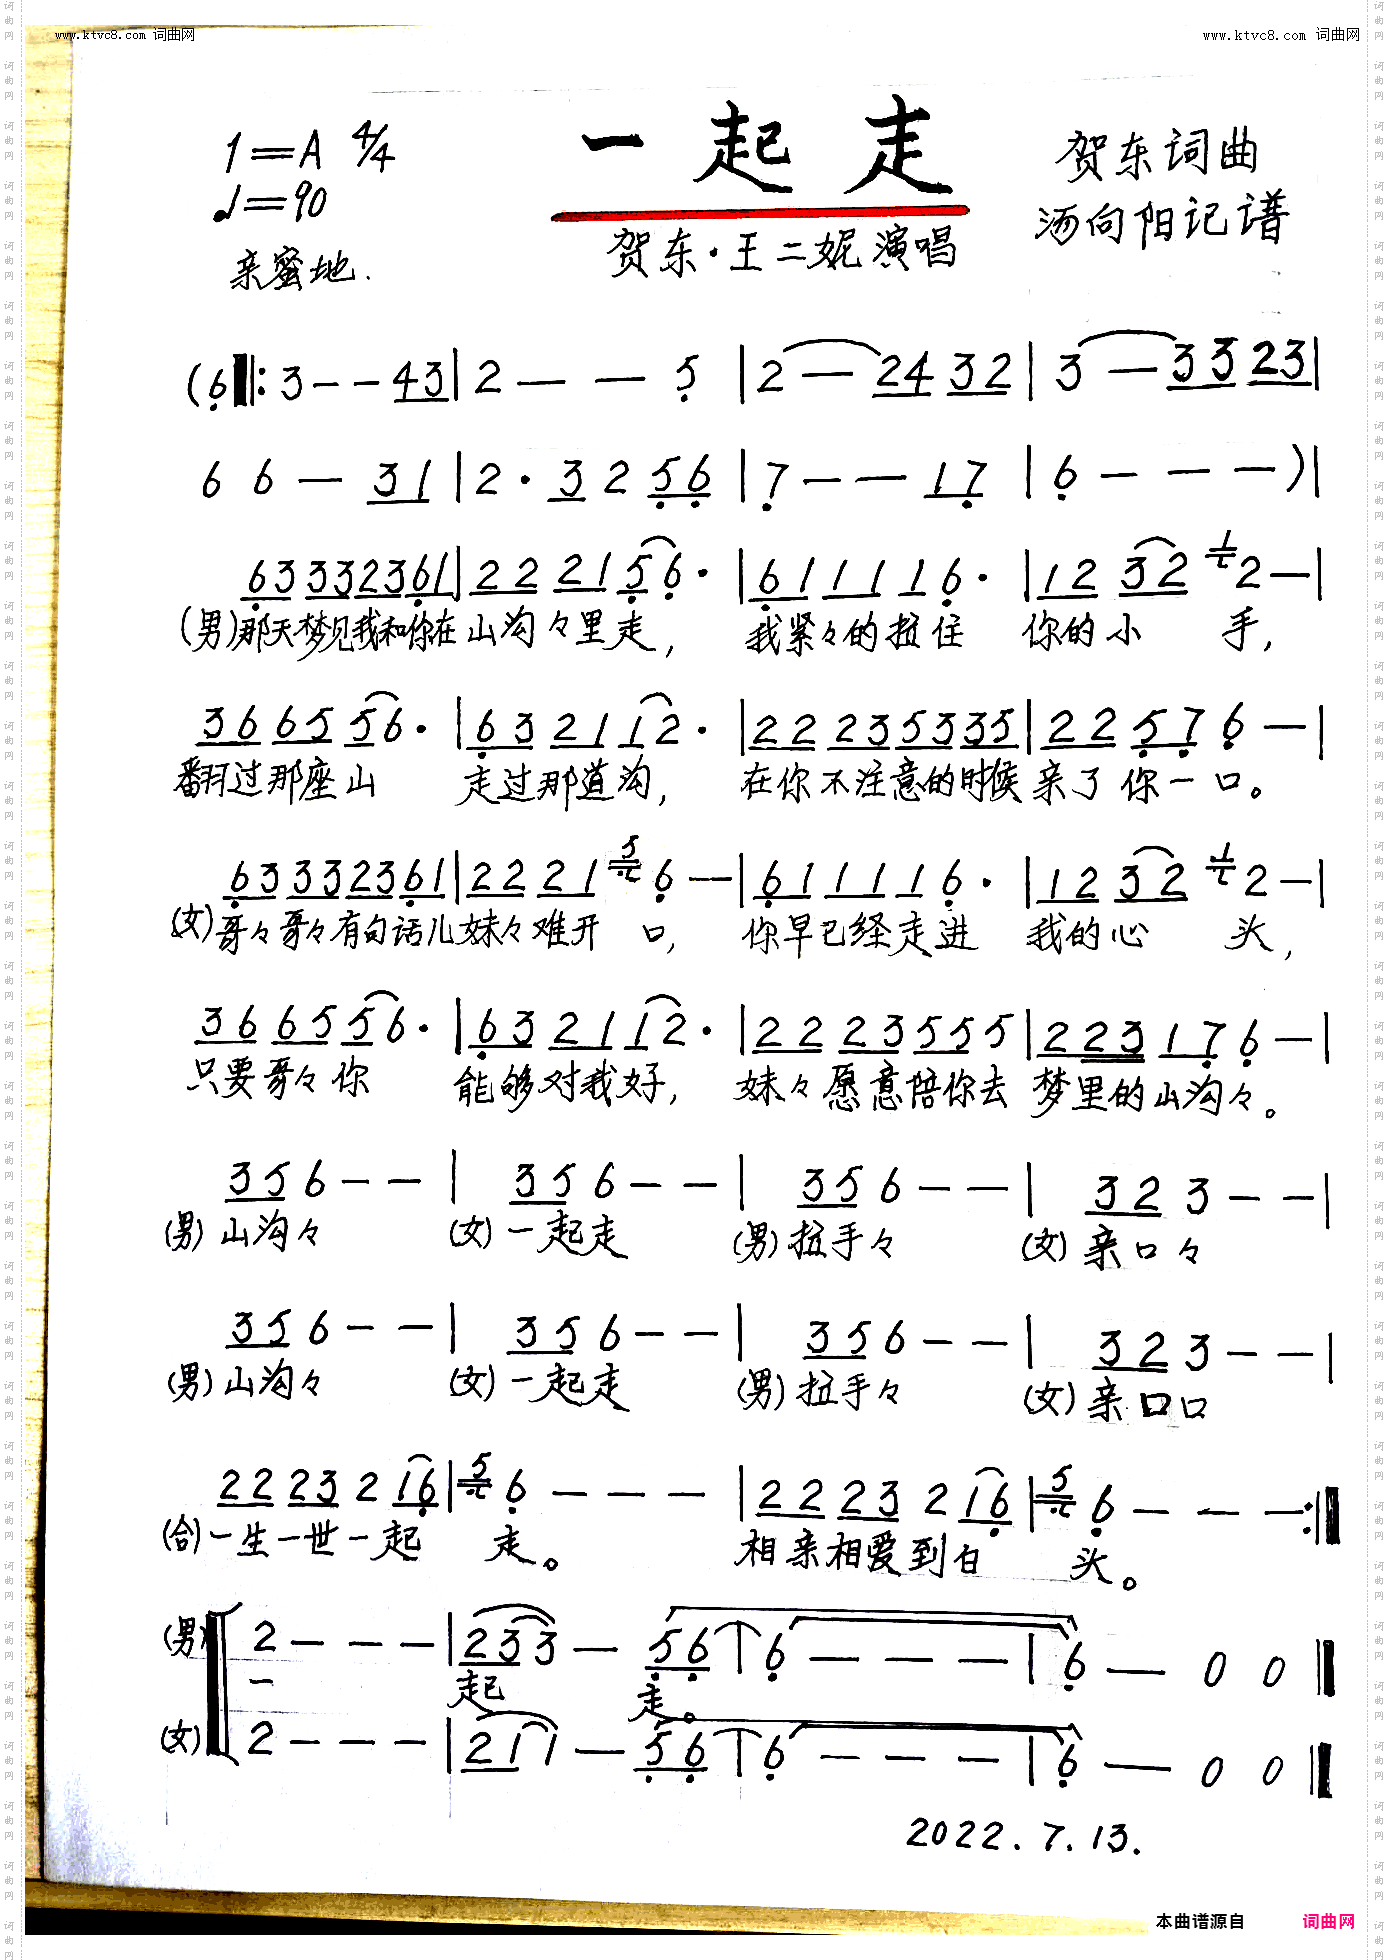 www.ktvc8.com 词曲网
www.ktvc8.com 词曲网
1=A 4/4
一起走
贺东词曲
♩=90
汤向阳记谱
贺东·王二妮演唱
亲蜜地.
(6‖: 3 - - 43 | 2 - - 5 | 2 - 24 32 | 3 - 33 23 |
6 6 - 31 | 2 · 3 2 56 | 7 - - 17 | 6 - - - ) |
63 33 23 61 | 22 21 56 · | 61 11 16 · | 12 32 1 2 - |
(男)那天梦见我和你在山沟々里走, 我紧々的拉住 你的小 手,
36 65 56 · | 63 21 12 · | 22 23 53 35 | 22 57 6 - |
翻过那座山 走过那道沟, 在你不注意的时候 亲了你一口。
63 33 23 61 | 22 21 5 6 - | 61 11 16 · | 12 32 1 2 - |
(女)哥々哥々有句话儿妹々难开 口, 你早已经走进 我的心 头,
36 65 56 · | 63 21 12 · | 22 23 55 5 | 2 23 17 6 - |
只要哥々你 能够对我好, 妹々愿意陪你去 梦里的山沟々。
35 6 - - | 35 6 - - | 35 6 - - | 32 3 - - |
(男)山沟々 (女)一起走 (男)拉手々 (女)亲口々
35 6 - - | 35 6 - - | 35 6 - - | 32 3 - - |
(男)山沟々 (女)一起走 (男)拉手々 (女)亲口口
22 23 2 16 | 5 6 - - - | 22 23 2 16 | 5 6 - - - :‖
(合)一生一世一起 走。 相亲相爱到白 头。
(男) 2 - - - | 23 3 - 56 | 6 - - - | 6 - 0 0 ‖
一 起 走。
(女) 2 - - - | 21 1 - 56 | 6 - - - | 6 - 0 0 ‖
2022.7.13.
本曲谱源自 词曲网